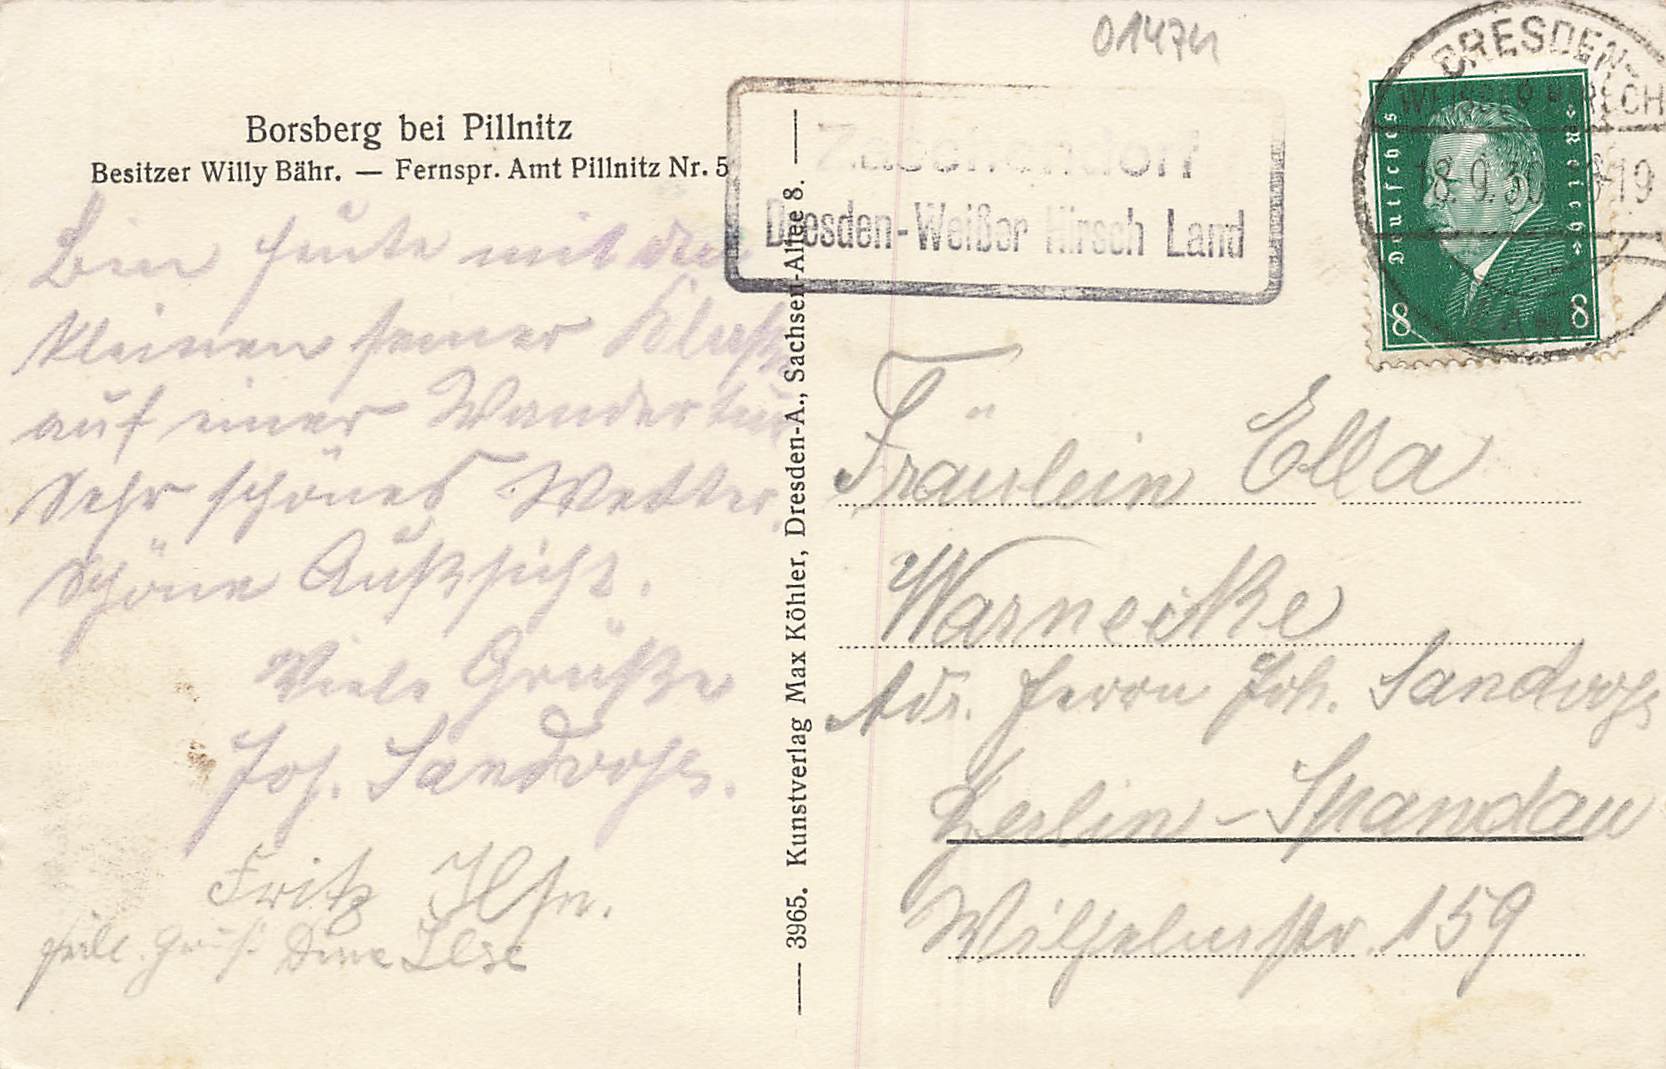 01474
Borsberg bei Pillnitz
Besitzer Willy Bähr. — Fernspr. Amt Pillnitz Nr. 5
Bin heute mit den
kleinen seiner Klasse
auf einer Wandertur
Sehr schönes Wetter,
schöne Aussicht.
Viele Grüße
Joh. Sandvoß.
Fritz Ilse.
Deine Ilse
3965. Kunstverlag Max Köhler, Dresden-A., Sachsen-Allee 8.
Zaschendorf
Dresden-Weißer Hirsch Land
DRESDEN-
WEISSER HIRSCH
18.9.30. 18-19
LAND
Deutsches Reich
8 8
Fräulein Ella
Warnecke
Adr. Herrn Joh. Sandvoß
Berlin - Spandau
Wilhelmstr. 159